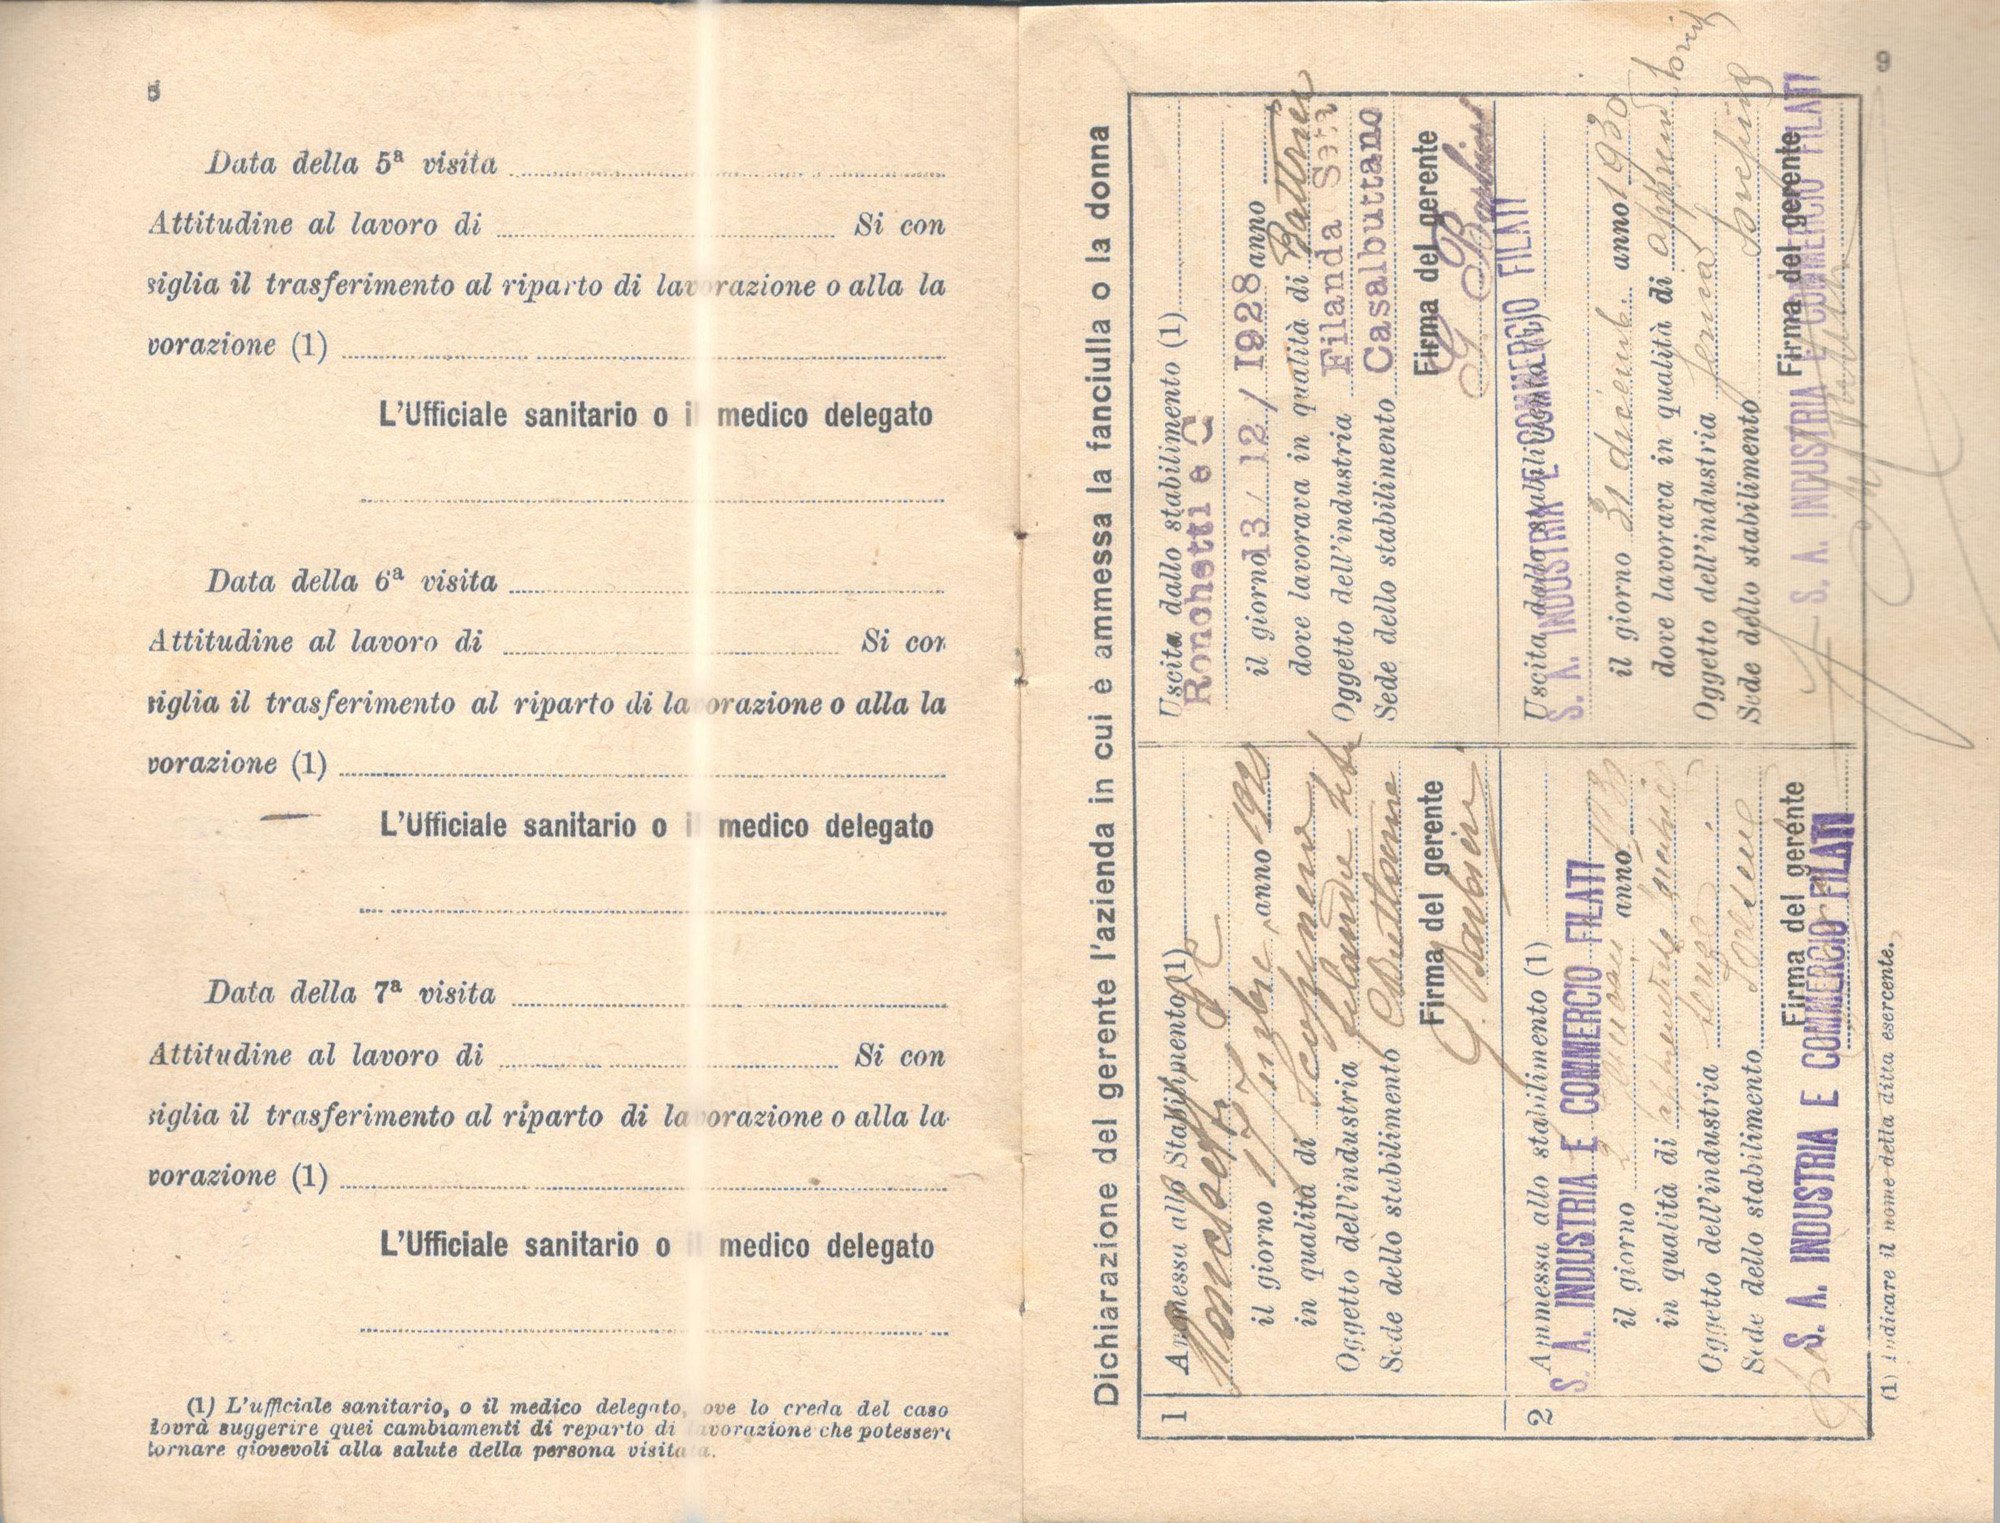 8
Data della 5ª visita
Attitudine al lavoro di Si con
siglia il trasferimento al riparto di lavorazione o alla la
vorazione (1)
L'Ufficiale sanitario o il medico delegato
Data della 6ª visita
Attitudine al lavoro di Si con
siglia il trasferimento al riparto di lavorazione o alla la
vorazione (1)
L'Ufficiale sanitario o il medico delegato
Data della 7ª visita
Attitudine al lavoro di Si con
siglia il trasferimento al riparto di lavorazione o alla la-
vorazione (1)
L'Ufficiale sanitario o il medico delegato
(1) L'ufficiale sanitario, o il medico delegato, ove lo creda del caso
dovrà suggerire quei cambiamenti di reparto di lavorazione che potessero
tornare giovevoli alla salute della persona visitata.
9
Dichiarazione del gerente l'azienda in cui è ammessa la fanciulla o la donna
1
Ammessa allo Stabilimento (1)
Ronchetti e C
il giorno 17 anno 1928
in qualità di
Oggetto dell'industria filanda seta
Sede dello stabilimento
Firma del gerente
G. Barbieri
Uscita dallo stabilimento (1)
Ronchetti e C
il giorno 13/12/1928 anno
dove lavorava in qualità di
Oggetto dell'industria Filanda Seta
Sede dello stabilimento Casalbuttano
Firma del gerente
G. Barbieri
2
Ammessa allo stabilimento (1)
S. A. INDUSTRIA E COMMERCIO FILATI
il giorno 2 anno 1930
in qualità di apprendista
Oggetto dell'industria
Sede dello stabilimento Soresina
Firma del gerente
S. A. INDUSTRIA E COMMERCIO FILATI
Uscita dallo stabilimento (1)
S. A. INDUSTRIA E COMMERCIO FILATI
il giorno 31 dicemb. anno 1930
dove lavorava in qualità di
Oggetto dell'industria
Sede dello stabilimento
Firma del gerente
S. A. INDUSTRIA E COMMERCIO FILATI
(1) Indicare il nome della ditta esercente.